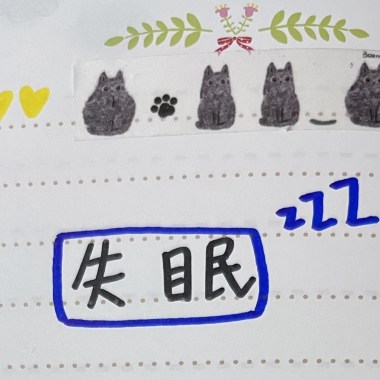 zzZ
失眠